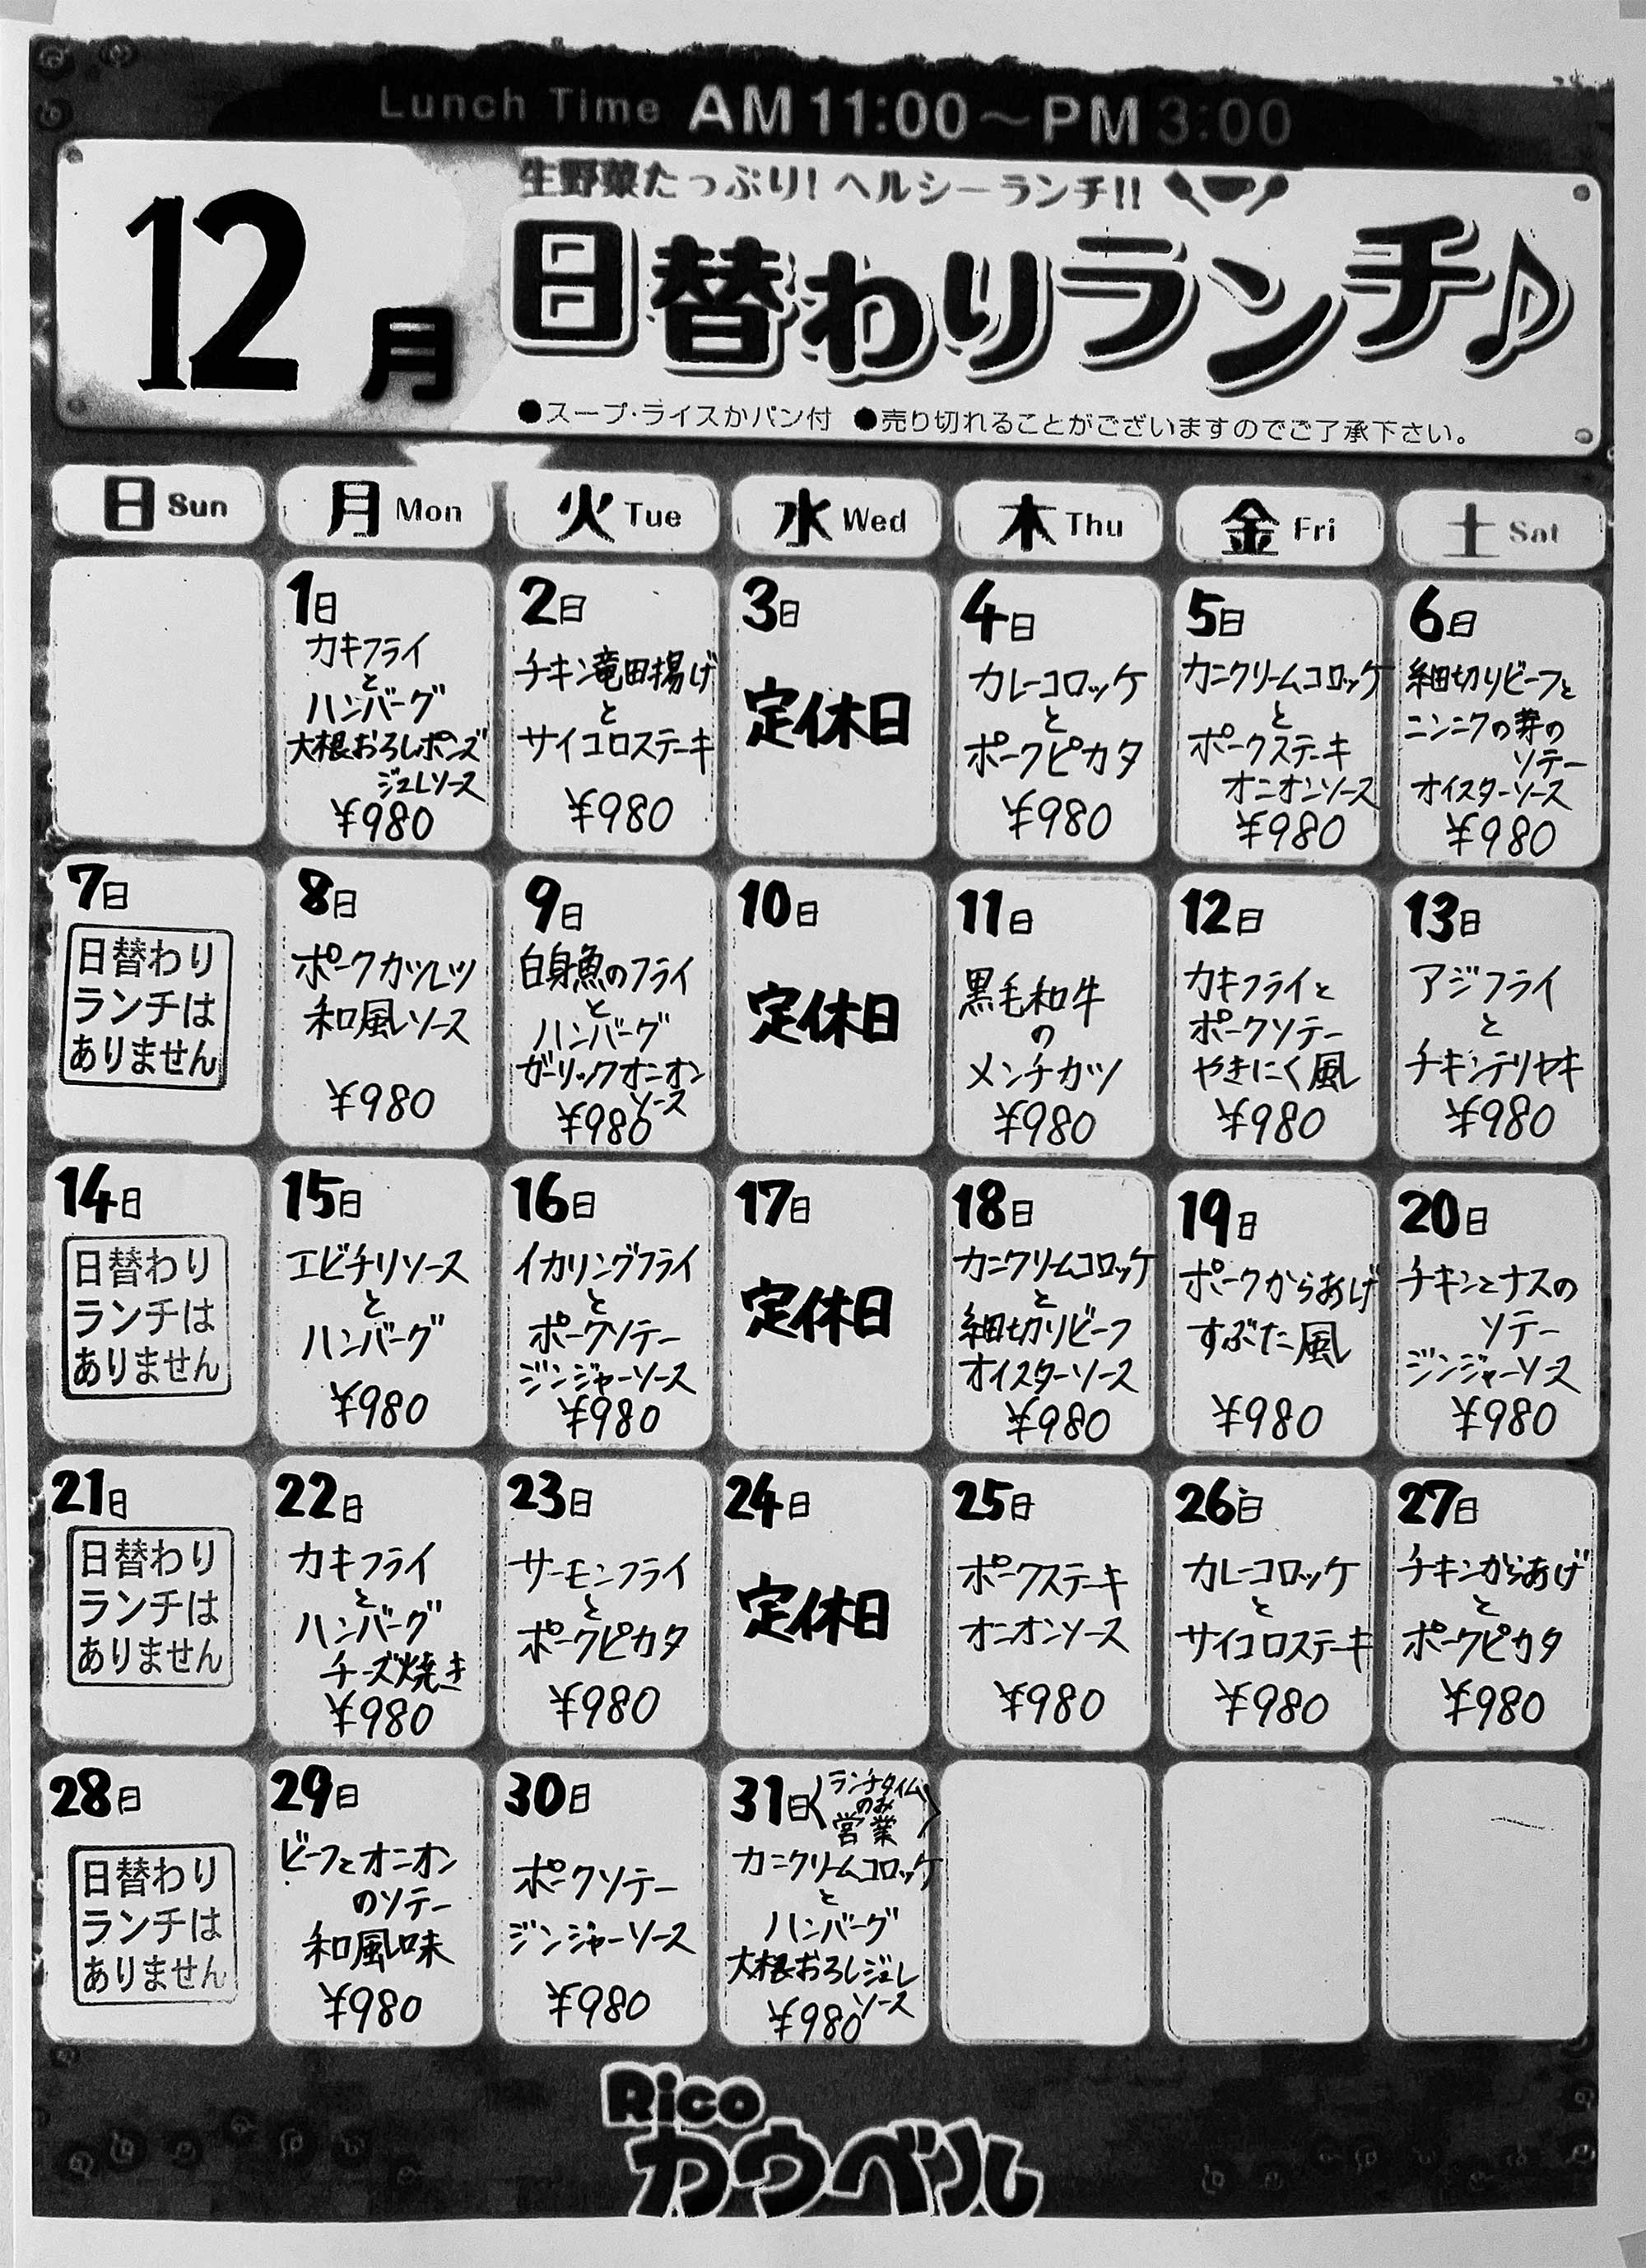 Lunch Time AM 11:00～PM 3:00
12月
生野菜たっぷり!ヘルシーランチ!!
日替わりランチ♪
●スープ・ライスかパン付 ●売り切れることがございますのでご了承下さい。
日 Sun
月 Mon
火 Tue
水 Wed
木 Thu
金 Fri
土 Sat
1日
カキフライ
と
ハンバーグ
大根おろしポンズ
ジュレソース
¥980
2日
チキン竜田揚げ
と
サイコロステーキ
¥980
3日
定休日
4日
カレーコロッケ
と
ポークピカタ
¥980
5日
カニクリームコロッケ
と
ポークステーキ
オニオンソース
¥980
6日
細切りビーフと
ニンニクの芽の
ソテー
オイスターソース
¥980
7日
日替わり
ランチは
ありません
8日
ポークカツレツ
和風ソース
¥980
9日
白身魚のフライ
と
ハンバーグ
ガーリックオニオン
ソース
¥980
10日
定休日
11日
黒毛和牛
の
メンチカツ
¥980
12日
カキフライと
ポークソテー
やきにく風
¥980
13日
アジフライ
と
チキンテリヤキ
¥980
14日
日替わり
ランチは
ありません
15日
エビチリソース
と
ハンバーグ
¥980
16日
イカリングフライ
と
ポークソテー
ジンジャーソース
¥980
17日
定休日
18日
カニクリームコロッケ
と
細切りビーフ
オイスターソース
¥980
19日
ポークからあげ
すぶた風
¥980
20日
チキンとナスの
ソテー
ジンジャーソース
¥980
21日
日替わり
ランチは
ありません
22日
カキフライ
と
ハンバーグ
チーズ焼き
¥980
23日
サーモンフライ
と
ポークピカタ
¥980
24日
定休日
25日
ポークステーキ
オニオンソース
¥980
26日
カレーコロッケ
と
サイコロステーキ
¥980
27日
チキンからあげ
と
ポークピカタ
¥980
28日
日替わり
ランチは
ありません
29日
ビーフとオニオン
のソテー
和風味
¥980
30日
ポークソテー
ジンジャーソース
¥980
31日〈ランチタイム
のみ
営業〉
カニクリームコロッケ
と
ハンバーグ
大根おろしジュレ
ソース
¥980
Rico
カウベル